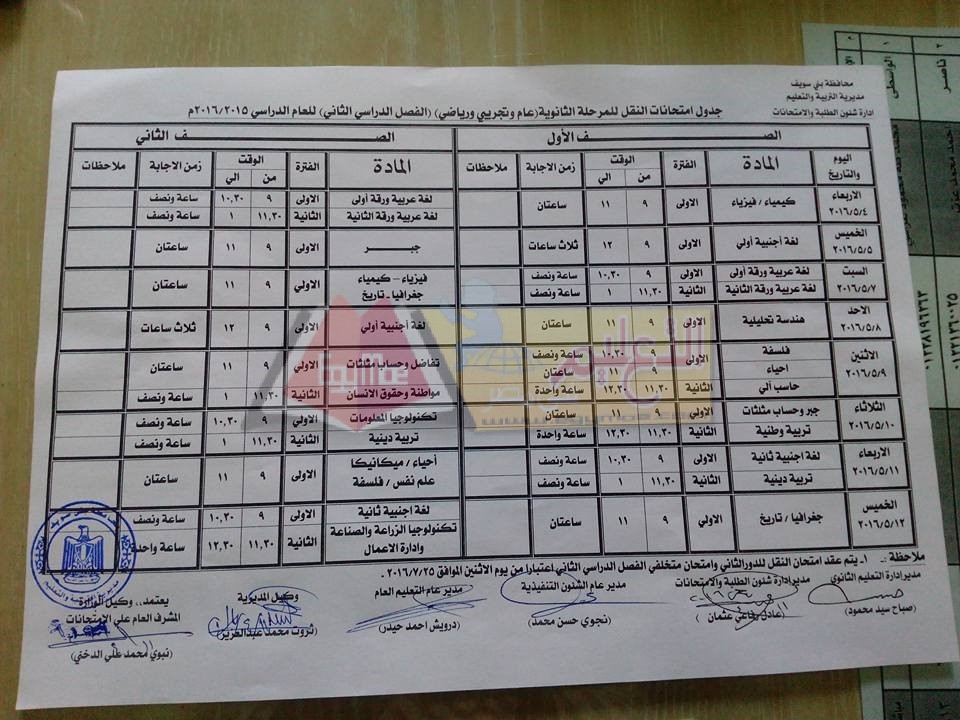 محافظة بني سويف
مديرية التربية والتعليم
ادارة شئون الطلبة والامتحانات
جدول امتحانات النقل للمرحلة الثانوية(عام وتجريبي ورياضي) (الفصل الدراسي الثاني) للعام الدراسي ٢٠١٦/٢٠١٥م
الصـف الأول الصـف الثاني
اليوم والتاريخ المادة الفترة الوقت من الي زمن الاجابة ملاحظات المادة الفترة الوقت من الي زمن الاجابة ملاحظات
الاربعاء ٢٠١٦/٥/٤
كيمياء / فيزياء الاولى ٩ ١١ ساعتان
لغة عربية ورقة أولى الاولى ٩ ١٠,٣٠ ساعة ونصف
لغة عربية ورقة الثانية الثانية ١١,٣٠ ١ ساعة ونصف
الخميس ٢٠١٦/٥/٥
لغة أجنبية أولي الاولى ٩ ١٢ ثلاث ساعات
جبـر الاولى ٩ ١١ ساعتان
السبت ٢٠١٦/٥/٧
لغة عربية ورقة أولى الاولى ٩ ١٠,٣٠ ساعة ونصف
لغة عربية ورقة الثانية الثانية ١١,٣٠ ١ ساعة ونصف
فيزياء - كيمياء
جغرافيا - تاريخ الاولي ٩ ١١ ساعتان
الاحد ٢٠١٦/٥/٨
هندسة تحليلية الاولى ٩ ١١ ساعتان
لغة أجنبية أولي الاولي ٩ ١٢ ثلاث ساعات
الاثنين ٢٠١٦/٥/٩
فلسفة الأولى ٩ ١٠,٣٠ ساعة ونصف
احياء ٩ ١١ ساعتان
حاسب آلي الثانية ١١,٣٠ ١٢,٣٠ ساعة واحدة
تفاضل وحساب مثلثات الاولي ٩ ١١ ساعتان
مواطنة وحقوق الانسان الثانية ١١,٣٠ ١ ساعة ونصف
الثلاثاء ٢٠١٦/٥/١٠
جبر وحساب مثلثات الاولي ٩ ١١ ساعتان
تربية وطنية الثانية ١١,٣٠ ١٢,٣٠ ساعة واحدة
تكنولوجيا المعلومات الاولي ٩ ١٠,٣٠ ساعة ونصف
تربية دينية الثانية ١١,٣٠ ١ ساعة ونصف
الاربعاء ٢٠١٦/٥/١١
لغة اجنبية ثانية الاولى ٩ ١٠,٣٠ ساعة ونصف
تربية دينية الثانية ١١,٣٠ ١ ساعة ونصف
أحياء / ميكانيكا
علم نفس / فلسفة الاولى ٩ ١١ ساعتان
الخميس ٢٠١٦/٥/١٢
جغرافيا / تاريخ الاولي ٩ ١١ ساعتان
لغة اجنبية ثانية الاولى ٩ ١٠,٣٠ ساعة ونصف
تكنولوجيا الزراعة والصناعة
وادارة الاعمال الثانية ١١,٣٠ ١٢,٣٠ ساعة واحدة
ملاحظة :- ١- يتم عقد امتحان النقل للدورالثاني وامتحان متخلفي الفصل الدراسي الثاني اعتبارا من يوم الاثنين الموافق ٢٠١٦/٧/٢٥ .
مديرادارة التعليم الثانوي مديرادارة شئون الطلبة والامتحانات مدير عام الشئون التنفيذية مدير عام التعليم العام وكيل المديرية يعتمد.. وكيل الوزارة
المشرف العام علي الامتحانات
(صباح سيد محمود) (عادل رفاعي عثمان) (نجوي حسن محمد) (درويش احمد حيدر) (ثروت محمد عبدالعزيز) (نبوي محمد علي الدخني)
ناصر
الواسطى